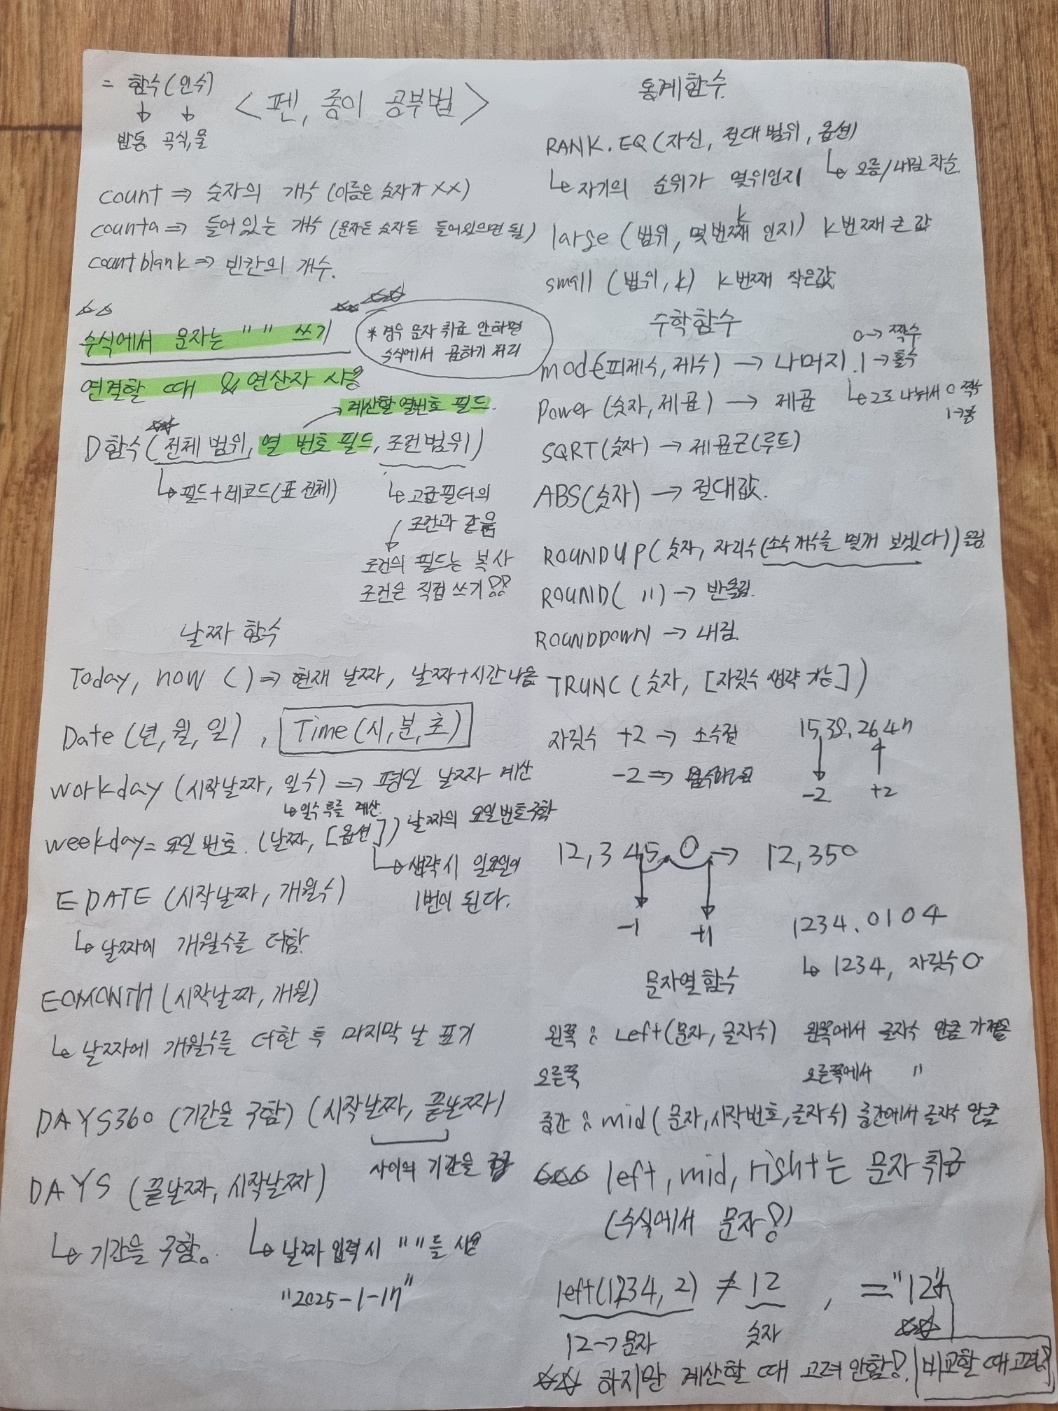 = 함수(인수)
발동 공식,물
<펜, 종이 공부법>
count ⇒ 숫자의 개수 (이름은 숫자가 XX)
counta ⇒ 들어있는 개수 (문자든 숫자든 들어있으면 됨)
countblank ⇒ 빈칸의 개수.
수식에서 문자는 " " 쓰기
* 경우 문자 취급 안하면
수식에서 곱하기 처리
연결할 때 & 연산자 사용
계산할 열번호 필드.
D함수(전체 범위, 열 번호 필드, 조건범위)
↳ 필드+레코드(표 전체)
↳ 고급필터의
조건과 같음
조건의 필드는 복사
조건은 직접 쓰기!!
날짜 함수
Today, now () ⇒ 현재 날짜, 날짜+시간 나옴
Date (년, 월, 일) , Time (시, 분, 초)
workday (시작날짜, 일수) ⇒ 평일 날짜 계산
↳ 일수 후를 계산.
weekday = 요일 번호. (날짜, [옵션]) 날짜의 요일번호구함
↳ 생략시 일요일이
1번이 된다.
EDATE (시작날짜, 개월수)
↳ 날짜에 개월수를 더함
EOMONTH (시작날짜, 개월)
↳ 날짜에 개월수를 더한 후 마지막 날 표기
DAYS360 (기간을 구함) (시작날짜, 끝날짜)
사이의 기간을 구함
DAYS (끝날짜, 시작날짜)
↳ 기간을 구함.
↳ 날짜 입력시 " "를 사용
"2025-1-17"
통계함수
RANK.EQ (자신, 절대 범위, 옵션)
↳ 자기의 순위가 몇위인지
↳ 오름/내림 차순
large (범위, 몇번째 인지) k번째 큰 값
k
small (범위, k) k번째 작은값
수학함수
mod(피제수, 제수) → 나머지.
0 → 짝수
1 → 홀수
↳ 2로 나눠서 0 짝수
1→홀
Power (숫자, 제곱) → 제곱
SQRT(숫자) → 제곱근(루트)
ABS(숫자) → 절대값.
ROUNDUP(숫자, 자리수(소수 개수를 몇개 보겠다)) 올림
ROUND( 〃) → 반올림.
ROUNDDOWN → 내림.
TRUNC (숫자, [자릿수 생략 가능])
자릿수 +2 → 소수점
-2 ⇒
-2 +2
12,345.0 ⇒ 12,350
-1 +1
1234.0104
↳ 1234, 자릿수 0
문자열함수
왼쪽 : Left(문자, 글자수) 왼쪽에서 글자수 만큼 가져옴
오른쪽 오른쪽에서 〃
중간 : mid(문자, 시작번호, 글자수) 중간에서 글자수 만큼
left, mid, right는 문자 취급
(수식에서 문자!)
left(1234, 2) ≠ 12 , = "12"
12→문자 숫자
하지만 계산할 때 고려 안함!. 비교할 때 고려!